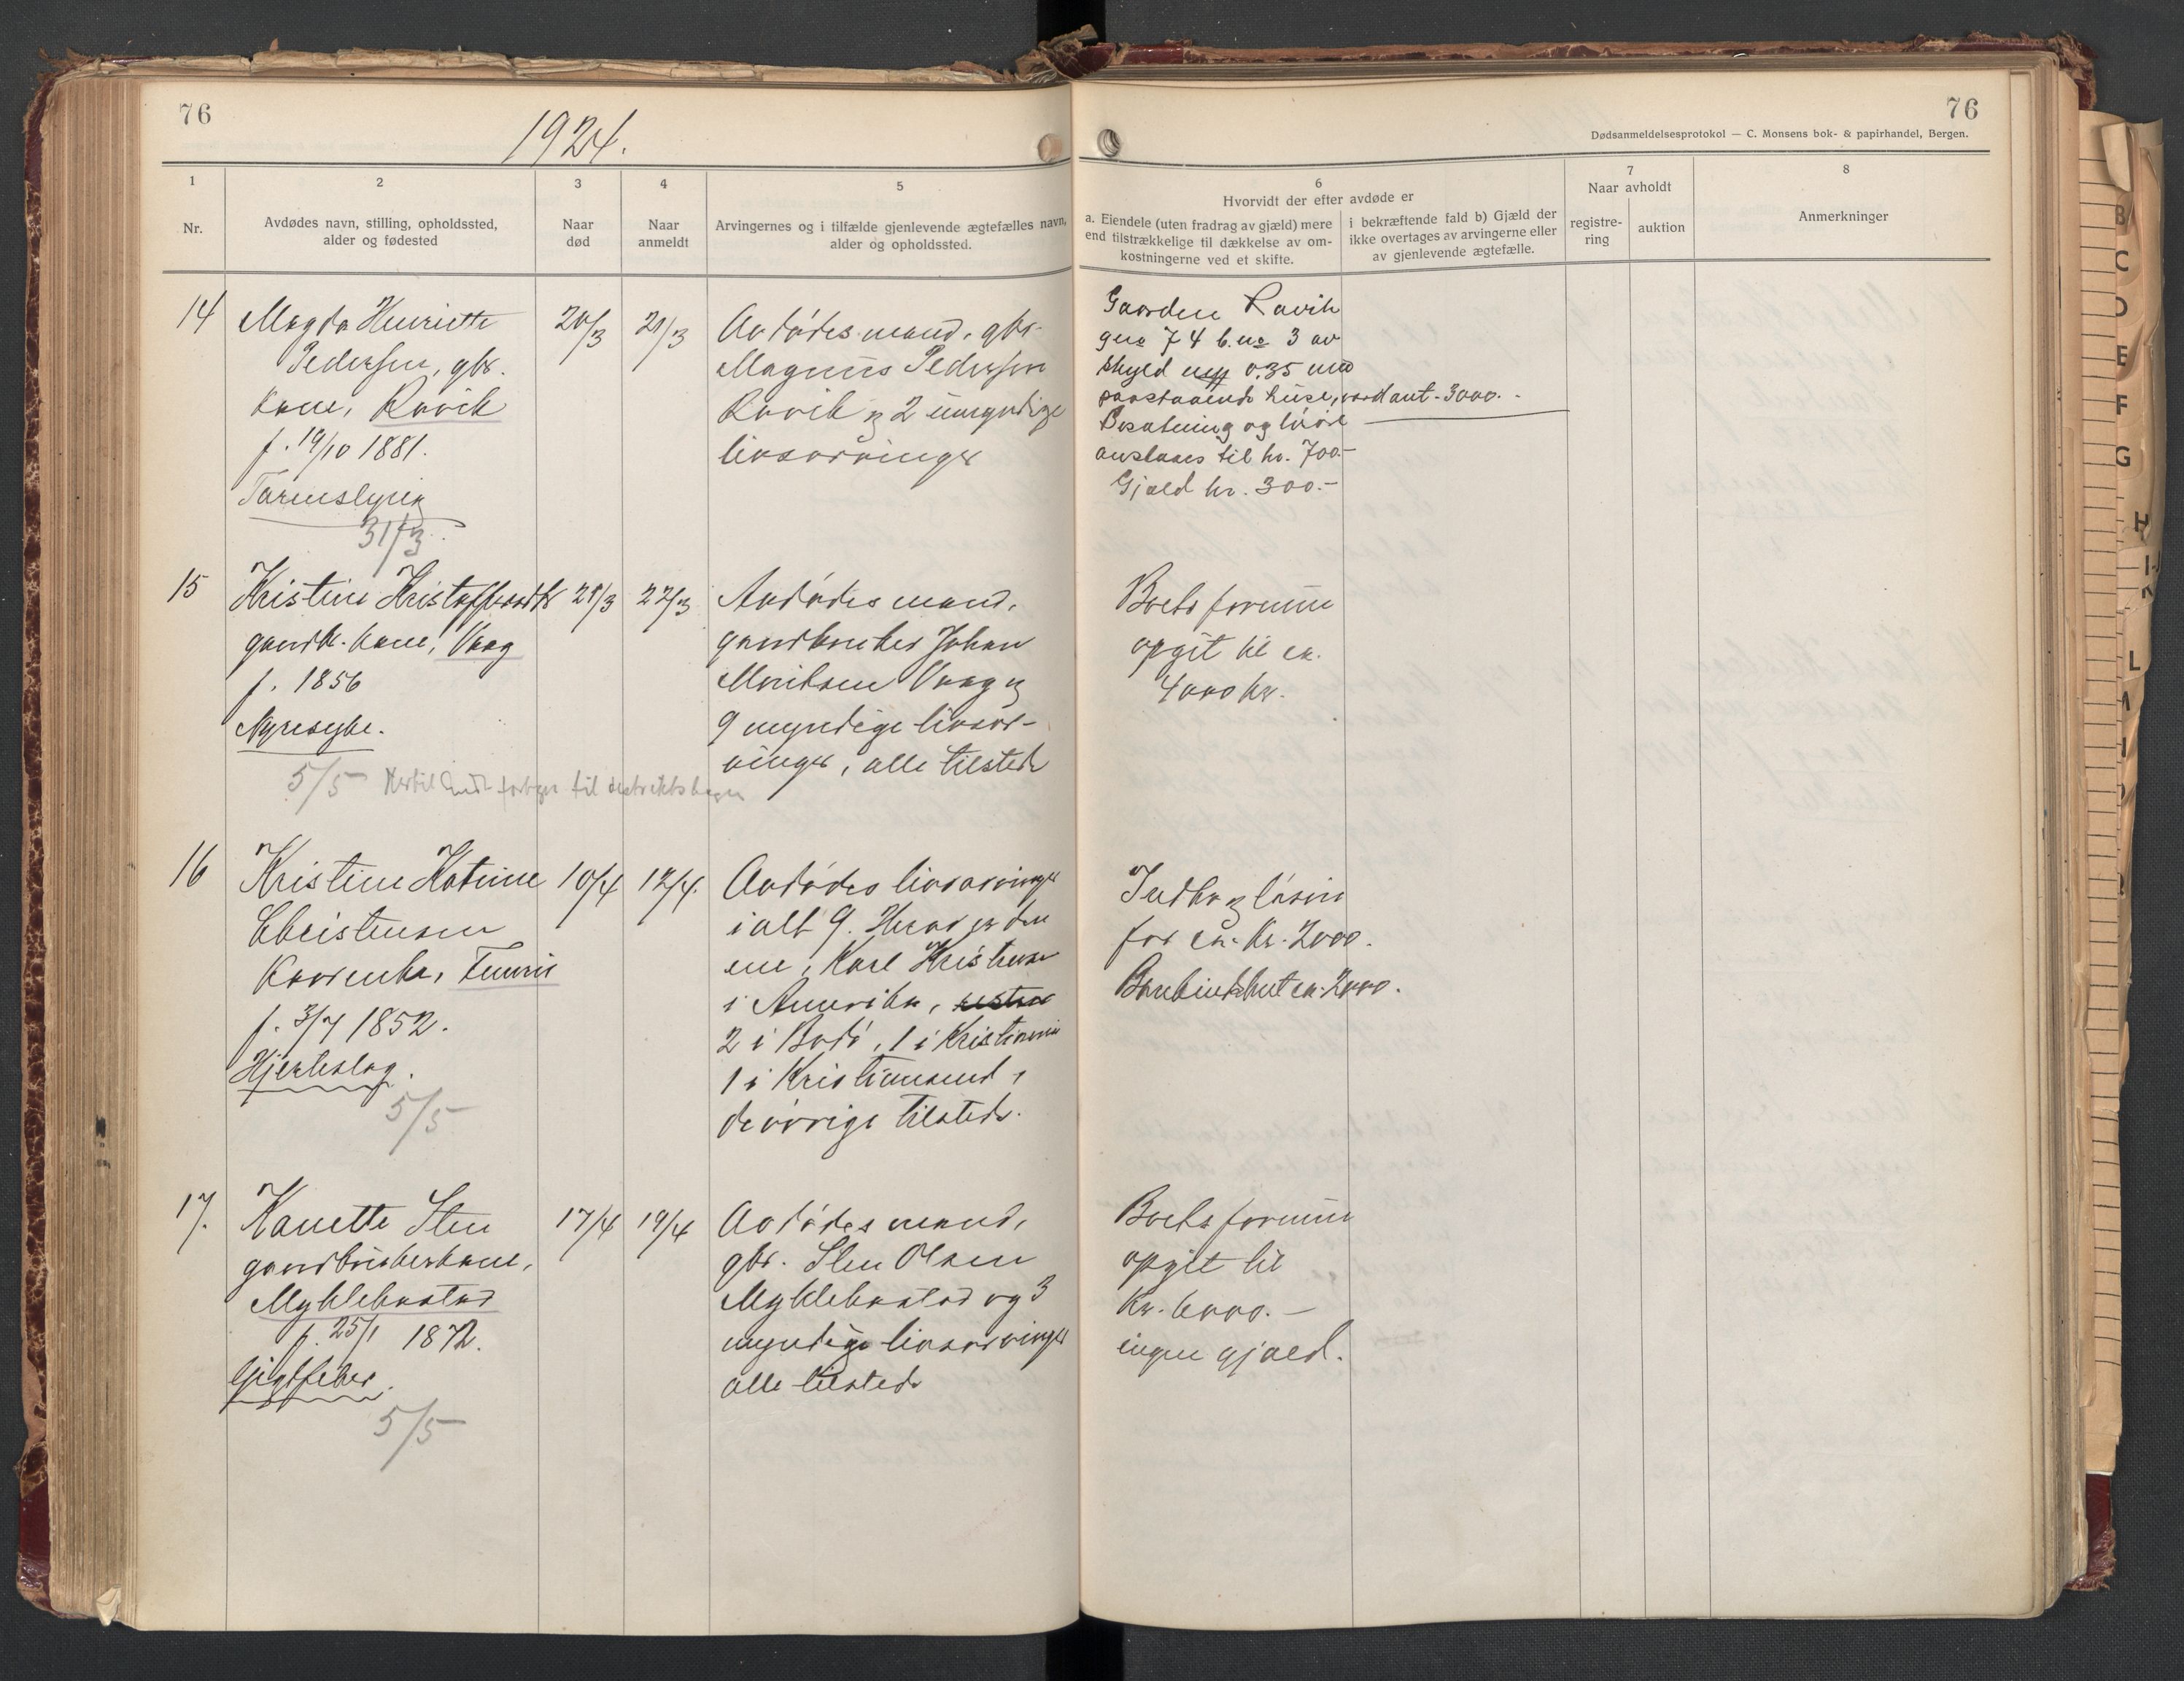 76
1924.
76
Dødsanmeldelsesprotokol — C. Monsens bok- & papirhandel, Bergen.
1
Nr.
2
Avdødes navn, stilling, opholdssted,
alder og fødested
3
Naar
død
4
Naar
anmeldt
5
Arvingernes og i tilfælde gjenlevende ægtefælles navn,
alder og opholdssted.
6
Hvorvidt der efter avdøde er
a. Eiendele (uten fradrag av gjæld) mere
end tilstrækkelige til dækkelse av om-
kostningerne ved et skifte.
i bekræftende fald b) Gjæld der
ikke overtages av arvingerne eller
av gjenlevende ægtefælle.
7
Naar avholdt
registre-
ring
auktion
8
Anmerkninger
14
Magda Henriette
Pedersen, gbr.
kone, Ravik
f. 19/10 1881.
31/3
20/3
21/3
Avdødes mand, gbr.
Magnus Pedersen
Ravik og 2 umyndige
livsarvinger
Gaarden Ravik
gno 74 b.no 3 av
skyld 0,35 med
paastaaende huse, verd ant. 3000.-
Besætning og løsøre
anslaaes til kr. 700.-
Gjæld kr. 300.-
15
Kristine
gaardbr. kone, Vaag
f. 1856
Nyresyke.
5/5
21/3
22/3
Avdødes mand,
gaardbruker Johan
Vaag og
9 myndige livsar-
vinger, alle tilstede
Boets formue
opgit til ca.
4000 kr.
16
Kristine Katrine
Christensen
f. 3/7 1852.
Hjerteslag.
5/5
10/4
12/4.
Avdødes livsarvinger
ialt 9. Herav er den
ene, Karl Kristensen
i Amerika,
2 i Bodø, 1 i Kristiania
1 i Kristiansund,
de øvrige tilstede.
Indbo og løsøre
for ca. kr. 2000.
Bankindskut ca. 2000.
17.
Hanette Sten
gaardbrukerkone,
Myklebostad
f. 25/1 1872.
Gigtfeber.
5/5
17/4
19/4
Avdødes mand,
gbr. Sten Olsen
Myklebostad og 3
myndige livsarvinger
alle tilstede
Boets formue
opgit til
Kr. 6000.—
ingen gjæld.
B
C
D
E
F
G
H
L